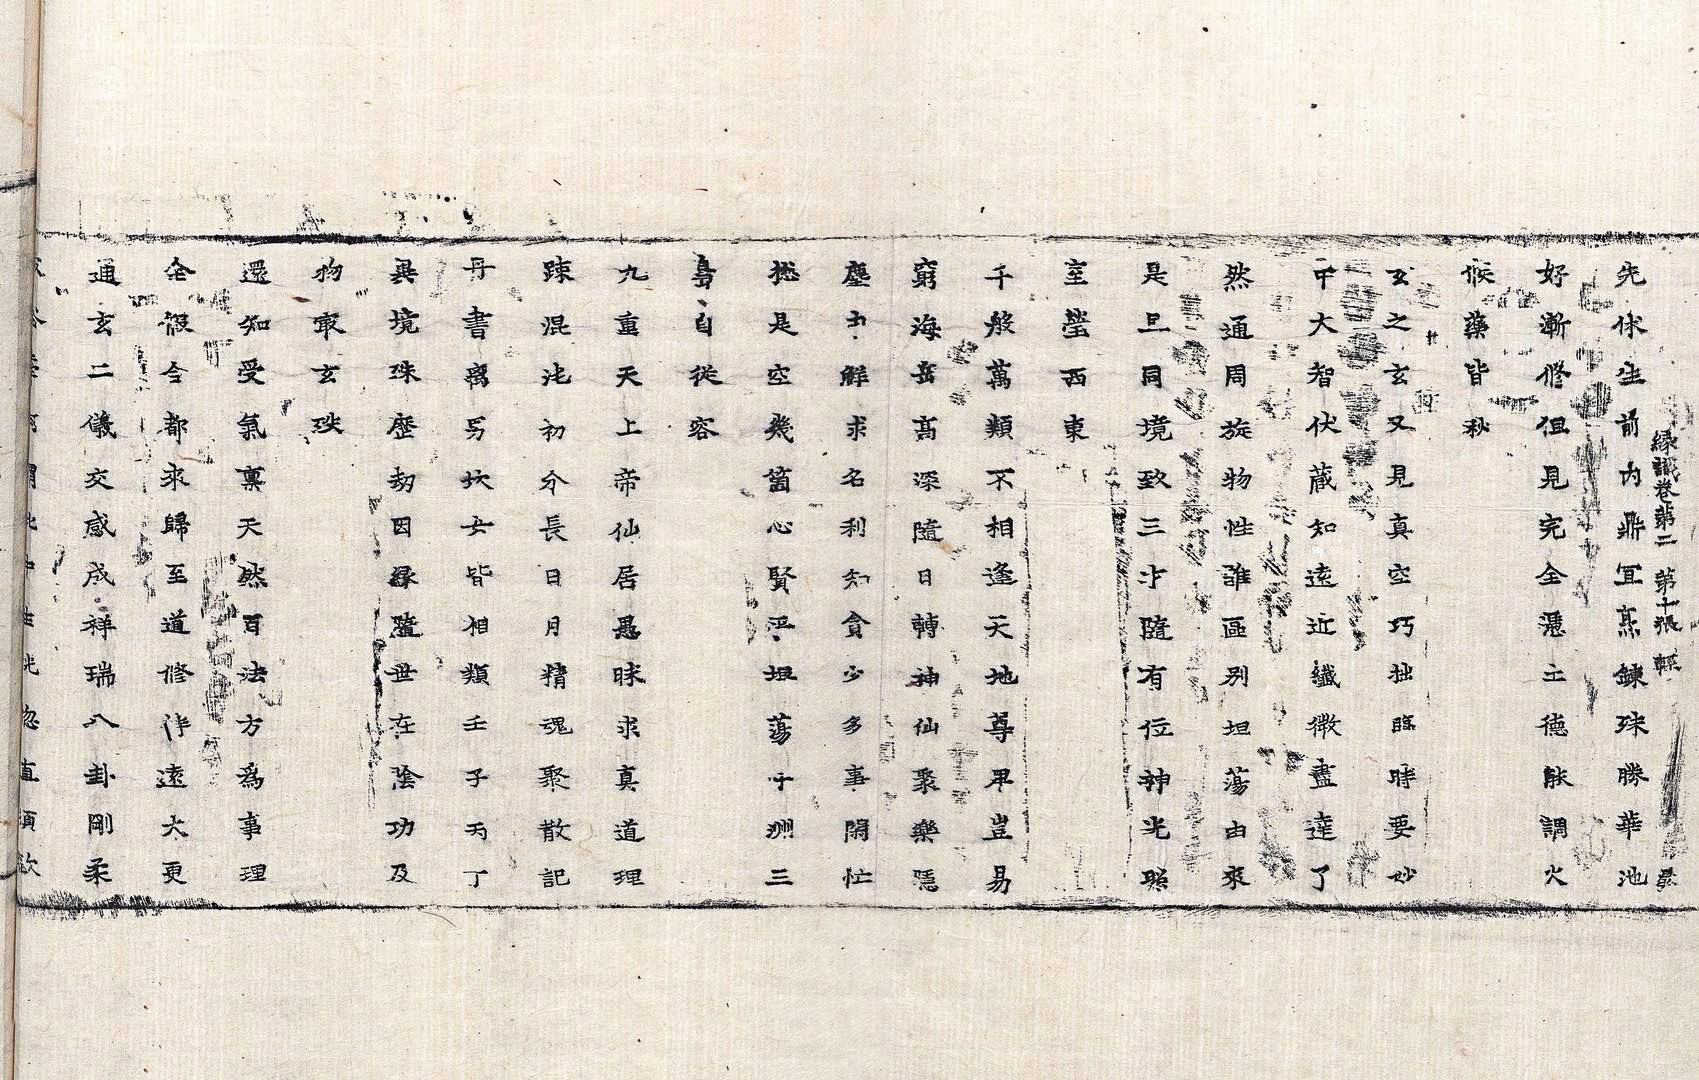 緣識卷第二 第十張 輕
先休生前內鼎宜烹鍊珠勝華池
好漸修但見完全憑土德能調火
候藥皆秋
玄之玄又見真空巧拙臨時要妙
中大智伏藏知遠近纖微盡達了
然通周旋物性誰區別坦蕩由來
是旦同境致三才隨有位神光照
室瑩西東
千般萬類不相逢天地尊卑豈易
窮海岳高深隨日轉神仙聚樂隱
塵士鮮求名利知貪少多事閑忙
捴是空幾箇心賢平坦蕩十洲三
島自從容
九重天上帝仙居愚昧求真道理
踈混沌初分長日月精魂聚散記
丹書离另坎女皆相類壬子丙丁
異境珠歷劫因緣隨世在陰功及
物取玄珠
還知受氣稟天然百法方為事理
全假合都來歸至道修作遠大更
通玄二儀交感成祥瑞八卦剛柔